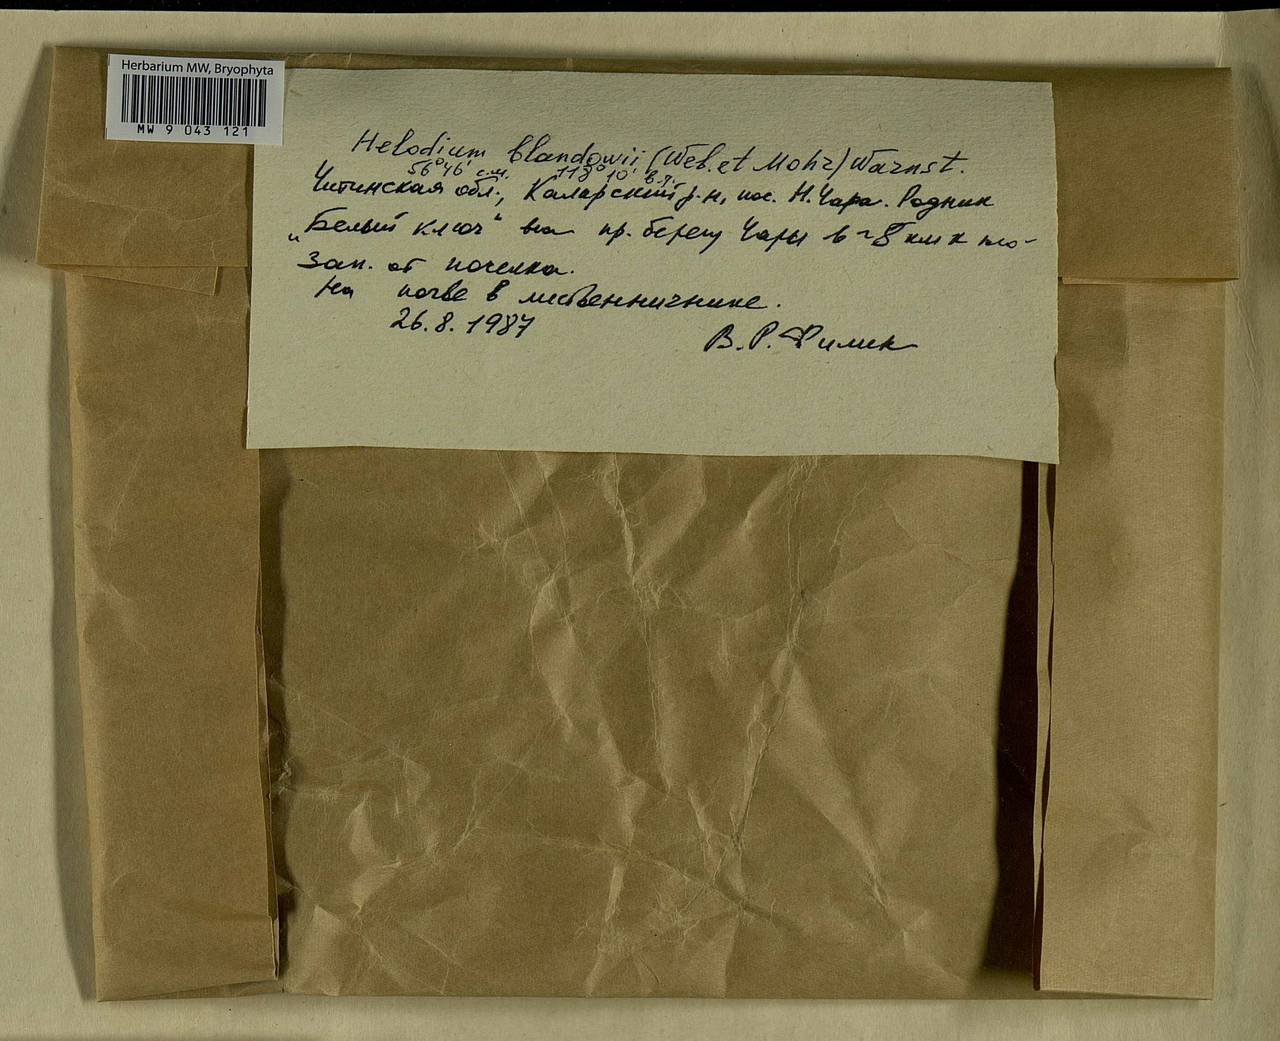 Herbarium MW, Bryophyta
MW 9 043 121
Helodium blandowii (Web. et Mohr) Warnst.
56°46' с.ш. 118°10' в.д.
Читинская обл., Каларский р-н, пос. Н. Чара. Родник
„Белый ключ" на пр. берегу Чары в ~8 км к юго-
зап. от поселка.
На почве в лиственничнике.
26.8.1987
В. Р. Филин